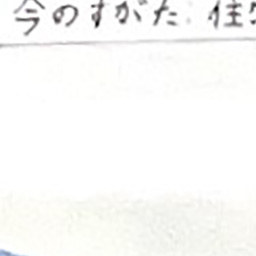 今のすがた 住